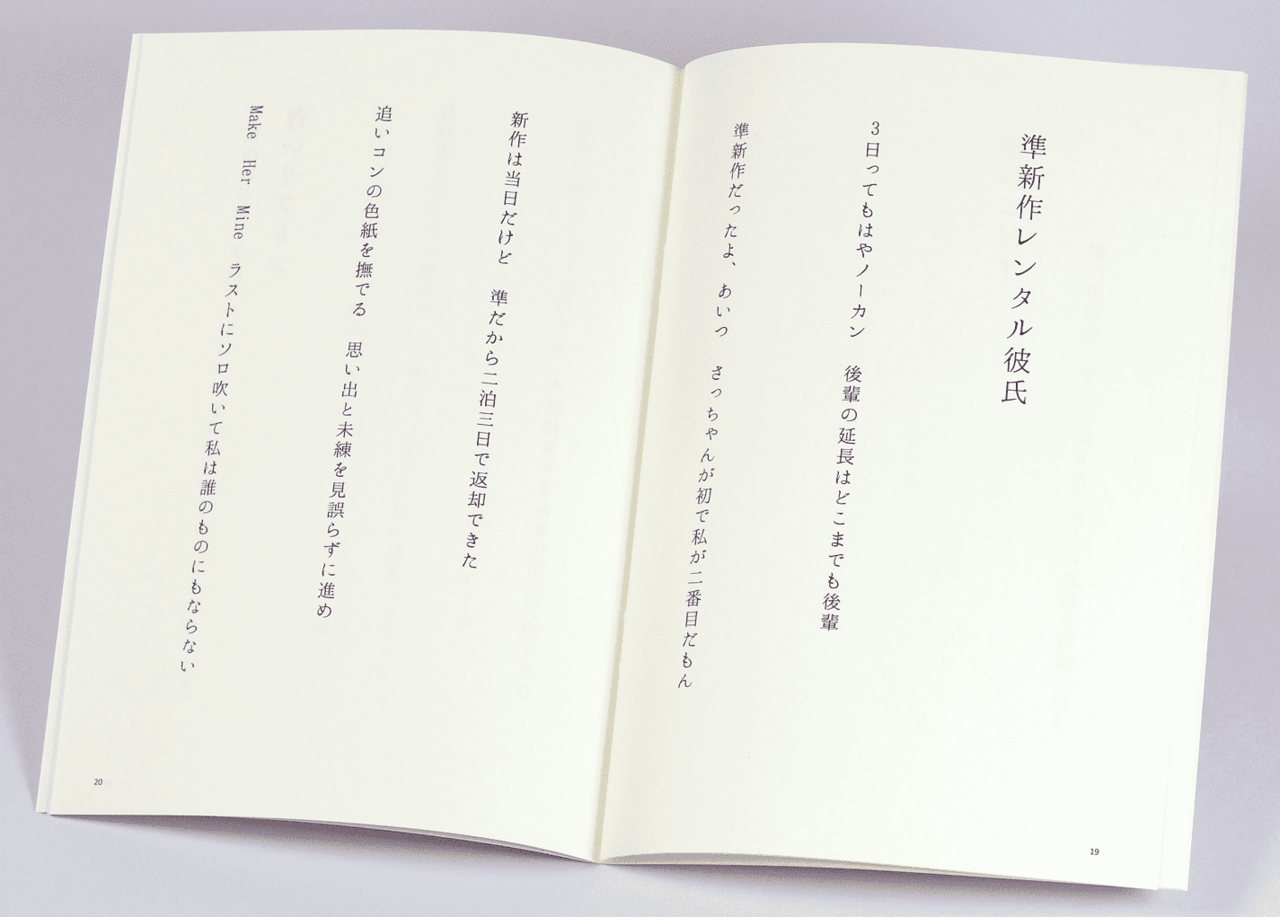 準新作レンタル彼氏
3日ってもはやノーカン　後輩の延長はどこまでも後輩
準新作だったよ、あいつ　さっちゃんが初で私が二番目だもん
19
新作は当日だけど　準だから二泊三日で返却できた
追いコンの色紙を撫でる　思い出と未練を見誤らずに進め
Make Her Mine　ラストにソロ吹いて私は誰のものにもならない
20